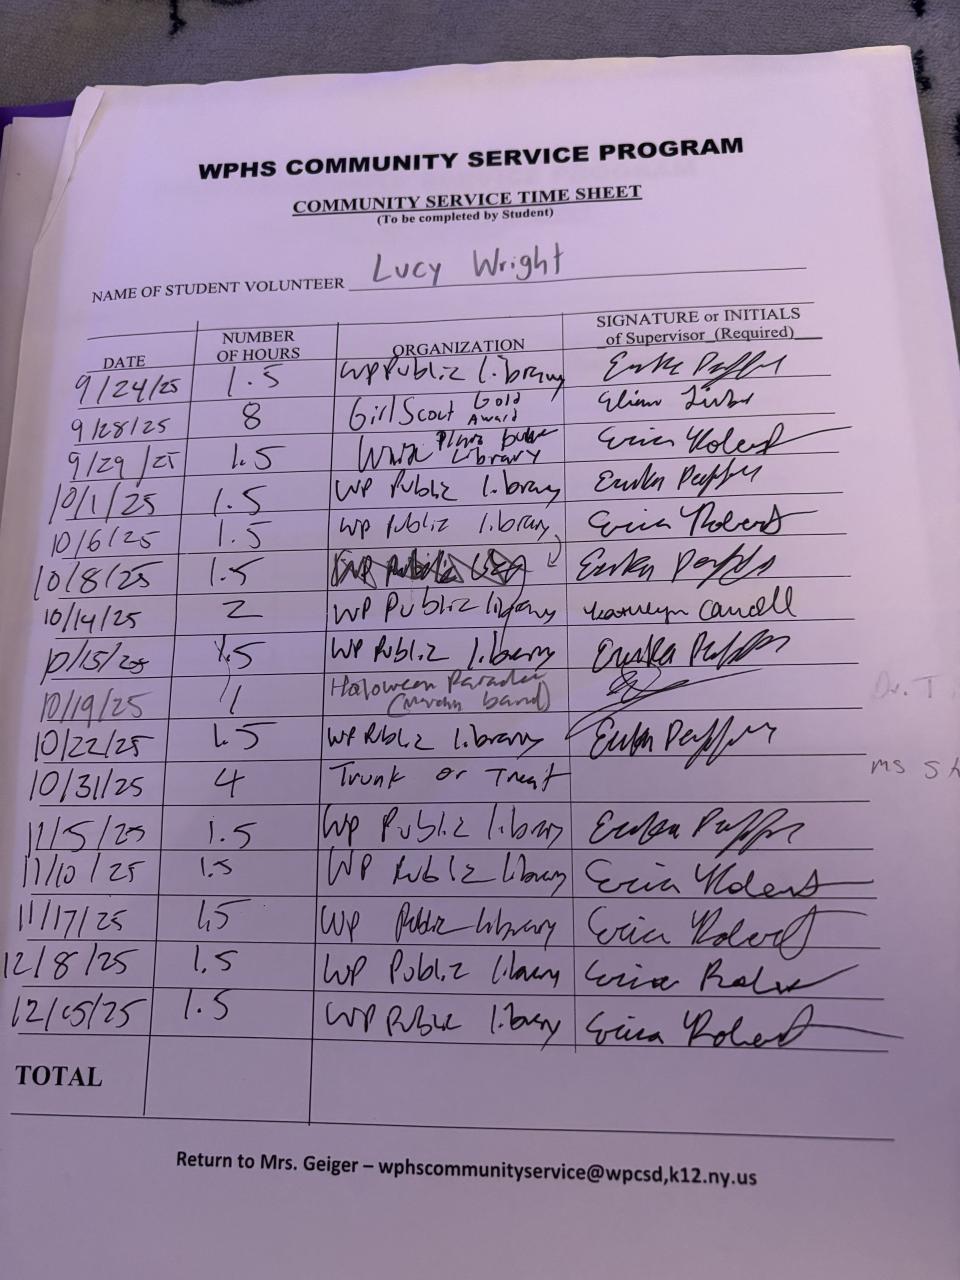 WPHS COMMUNITY SERVICE PROGRAM
COMMUNITY SERVICE TIME SHEET
(To be completed by Student)
NAME OF STUDENT VOLUNTEER Lucy Wright
DATE NUMBER OF HOURS ORGANIZATION SIGNATURE or INITIALS of Supervisor (Required)
9/24/25 1.5 WP Public Library Erika
9/28/25 8 Girl Scout Gold Award
9/29/25 1.5 Library Erica Robert
10/1/25 1.5 WP Public Library Erika
10/6/25 1.5 WP Public Library Erica Robert
10/8/25 1.5 Erika
10/14/25 2 WP Public Library
10/15/25 1.5 WP Public Library Erika
10/19/25 1 Haloween Parade (marchin band)
Dr. T
10/22/25 1.5 WP Public Library Erika
ms s
10/31/25 4 Trunk or Treat
11/5/25 1.5 WP Public Library Erika
11/10/25 1.5 WP Public Library Erica Robert
11/17/25 1.5 WP Public Library Erica Robert
12/8/25 1.5 WP Public Library Erica
12/15/25 1.5 WP Public Library Erica Robert
TOTAL
Return to Mrs. Geiger – wphscommunityservice@wpcsd,k12.ny.us